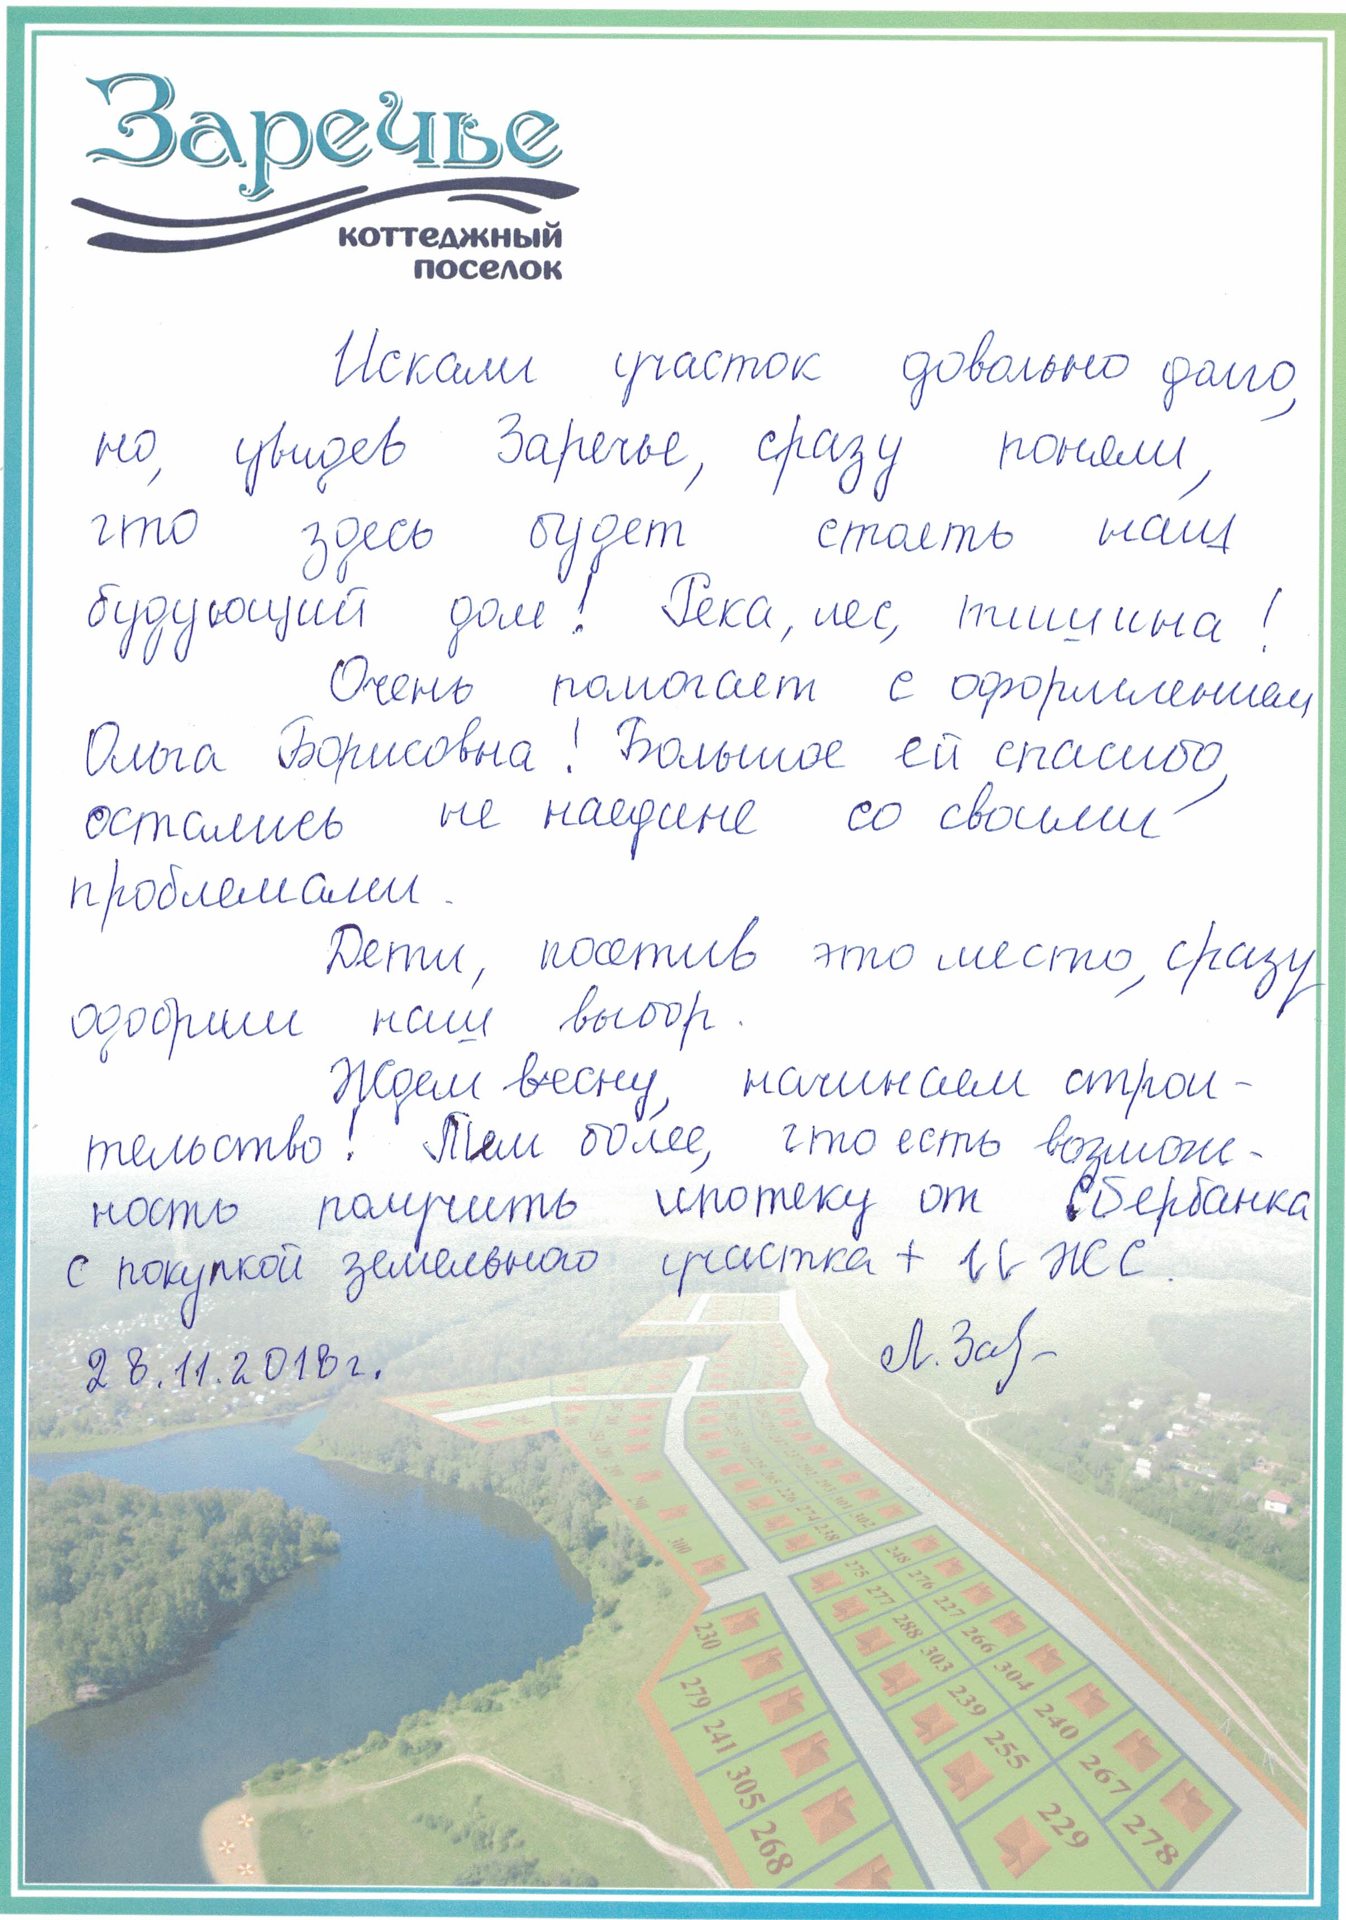 Заречье
коттеджный
поселок
Искали участок довольно долго,
но, увидев Заречье, сразу поняли,
что здесь будет стоять наш
будующий дом! Река, лес, тишина!
Очень помогает с оформлением
Ольга Борисовна! Большое ей спасибо,
остались не наедине со своими
проблемами.
Дети, посетив это место, сразу
одобрили наш выбор.
Ждем весну, начинаем строи-
тельство! Тем более, что есть возмож-
ность получить ипотеку от Сбербанка
с покупкой земельного участка + ИЖС.
28.11.2018г.
Л.
300
302
248
275
276
277
227
288
266
303
304
230
239
240
279
255
267
241
305
229
278
268